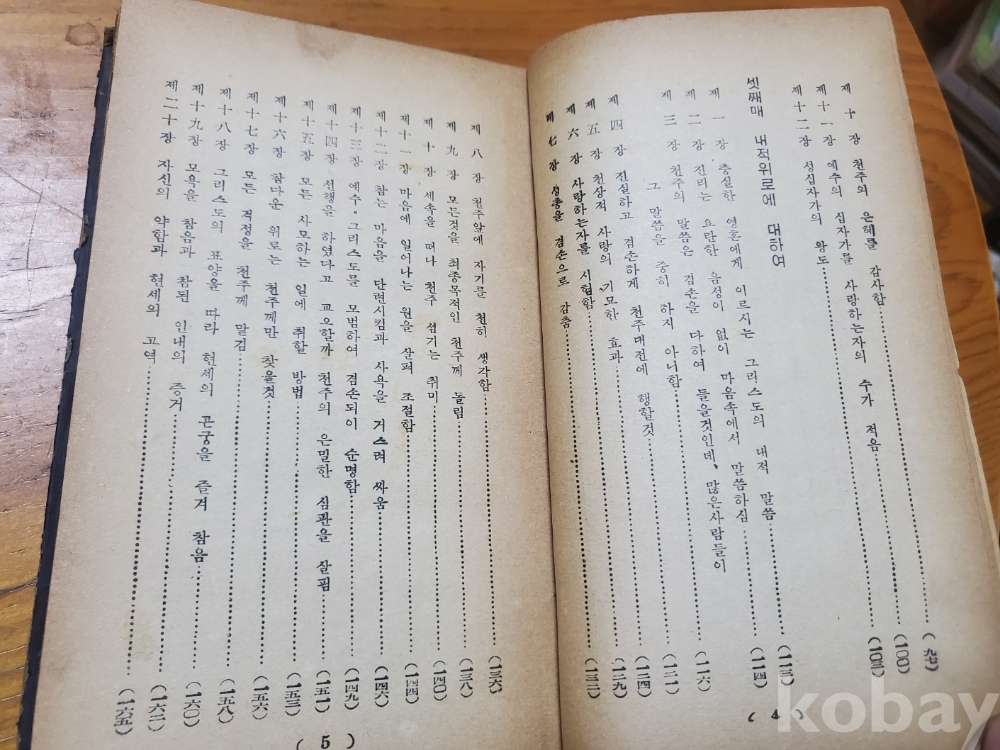 제 十 장 천주의 은혜를 감사함 (九七)
제十一장 예수의 십자가를 사랑하는자의 수가 적음 (一〇〇)
제十二장 성십자가의 왕도 (一〇三)
셋째매 내적위로에 대하여 (一一三)
제 一 장 충실한 영혼에게 이르시는 그리스도의 내적 말씀 (一一四)
제 二 장 진리는 요란한 음성이 없이 마음속에서 말씀하심 (一一六)
제 三 장 천주의 말씀은 겸손을 다하여 들을것인데, 많은사람들이
그 말씀을 중히 하지 아니함 (一二一)
제 四 장 진실하고 겸손하게 천주대전에 행할것 (一二四)
제 五 장 천상적 사랑의 기묘한 효과 (一二九)
제 六 장 사랑하는자를 시험함 (一三二)
제 七 장 성총을 겸손으로 감춤
( 4 )
제 八 장 천주앞에 자기를 천히 생각함 (一三六)
제 九 장 모든것을 최종목적인 천주께 돌림 (一三八)
제 十 장 세속을 떠나 천주 섬기는 취미 (一四〇)
제十一장 마음에 일어나는 원을 살펴 조절함 (一四四)
제十二장 참는 마음을 단련시킴과 사욕을 거스려 싸움 (一四六)
제十三장 예수·그리스도를 모범하여 겸손되이 순명함 (一四九)
제十四장 선행을 하였다고 교오할까 천주의 은밀한 심판을 살핌 (一五一)
제十五장 모든 사모하는 일에 취할 방법 (一五三)
제十六장 참다운 위로는 천주께만 찾을것 (一五六)
제十七장 모든 걱정을 천주께 맡김 (一五八)
제十八장 그리스도의 표양을 따라 현세의 곤궁을 즐겨 참음 (一六〇)
제十九장 모욕을 참음과 참된 인내의 증거 (一六二)
제二十장 자신의 약함과 현세의 고역 (一六五)
( 5 )
kobay